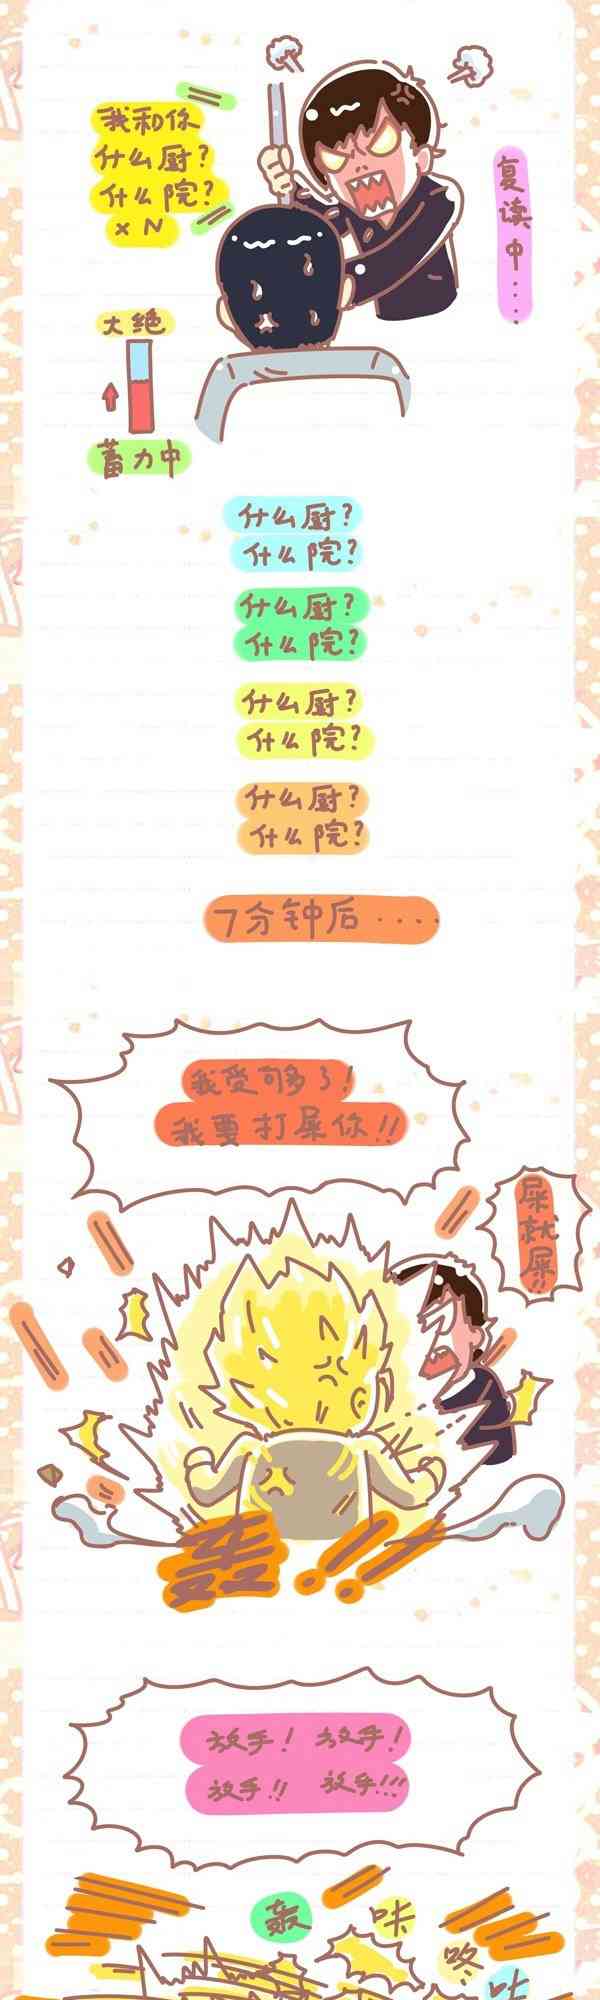 我和你
什么厨?
什么院?
× N
复读中····
大绝
蓄力中
什么厨?
什么院?
什么厨?
什么院?
什么厨?
什么院?
什么厨?
什么院?
7分钟后····
我受够了!
我要打屎你!!
屎就屎!!
轰!!
放手! 放手!
放手!! 放手!!!
轰
咔
咚
咔